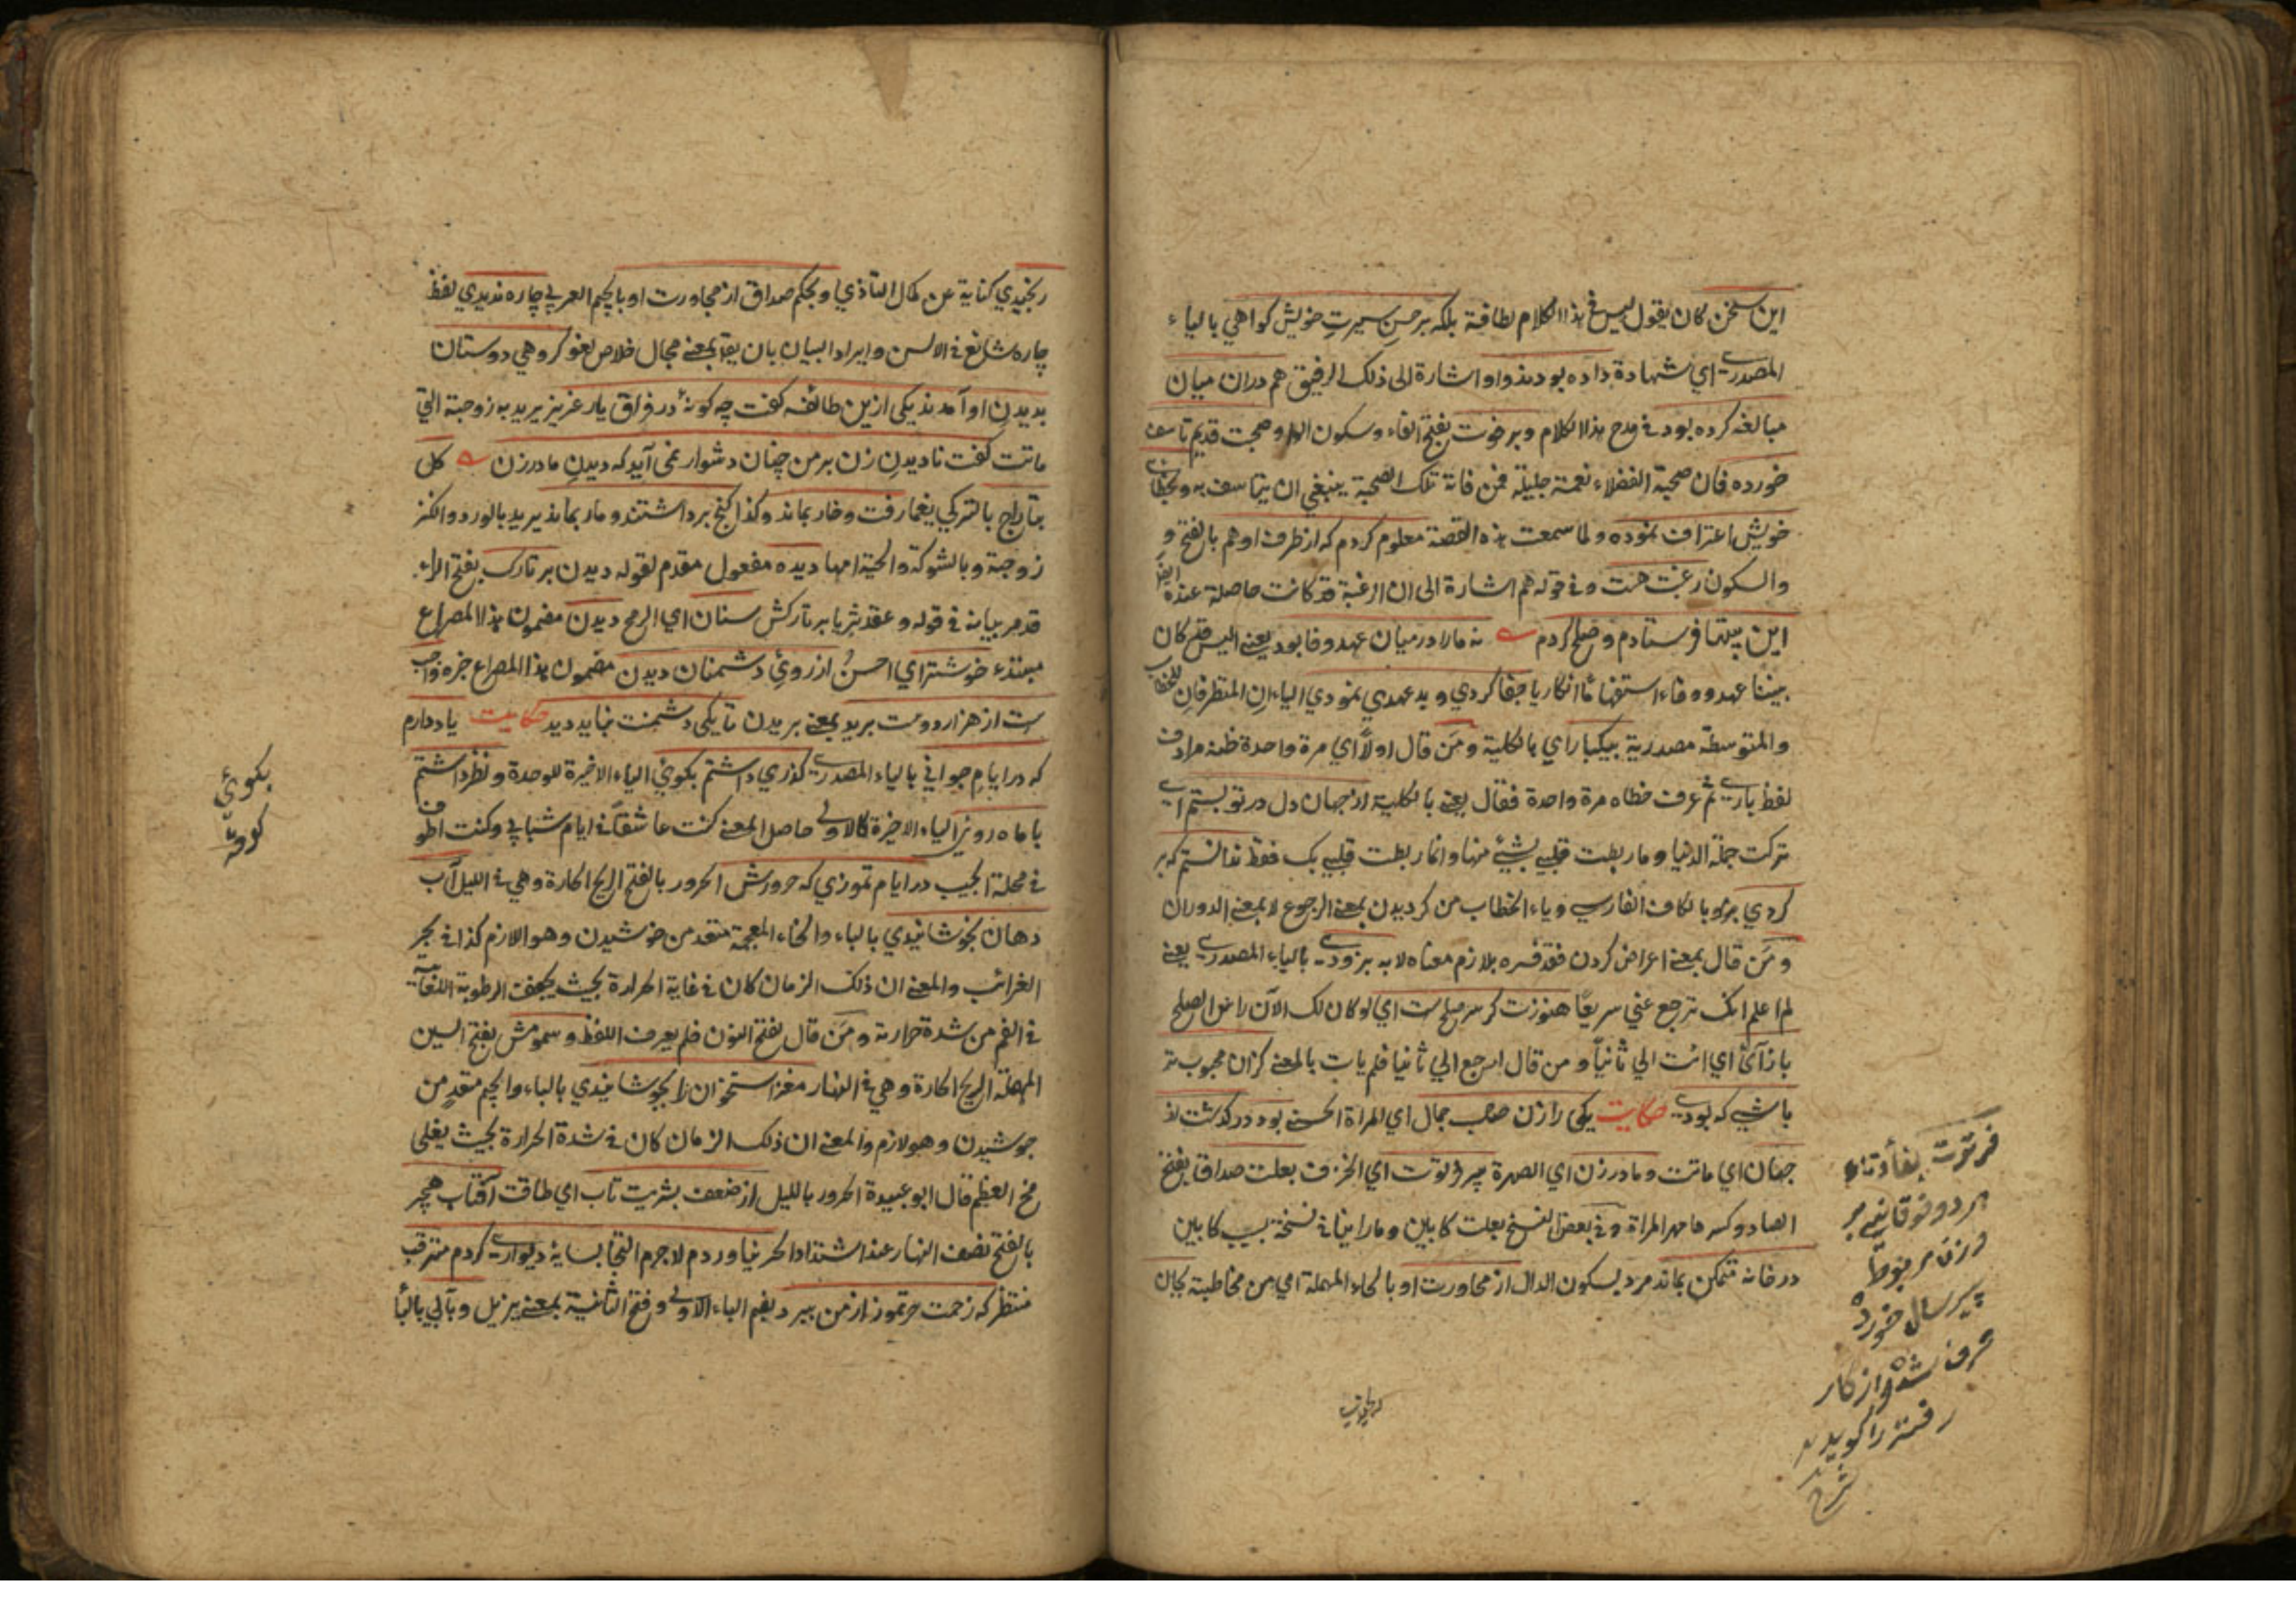 این سخن کان یقول لیس فی هذا الکلام لطافة بلکه بر حسن سیرت خویش کواهي بالیاء
المصدریة اي شهادة داده بودند واو اشارة الی ذلک الرفیق هم دران میان
مبالغه کرده بود في مدح هذا الکلام وبر فوت بفتح الفاء وسکون الواو صحبت قدیم تاسف
خورده فان صحبة الفضلاء نعمة جلیلة فمن فاته تلک الصحبة ینبغي ان یتاسف به وبخطای
خویش اعتراف نموده ولما سمعت هذه القصة معلوم کردم که از طرف او هم بالفتح و
والسکون رغبت هست وفي قوله هم اشارة الی ان الرغبة قد کانت حاصلة عنده ایضا
این بیتها فرستادم وصلح کردم نه مارا درمیان عهد وفا بود یعني الیس قد کان
بیننا عهد ووفاء استفهاما انکاریا جفا کردي وبد عهدي نمودي الیاء ان المتطرفان للخطاب
والمتوسطة مصدریة بیکبار اي بالکلیة ومن قال اولا اي مرة واحدة ظنه مرادف
لفظ باري ثم عرف خطاه مرة واحدة فقال یعني بالکلیة از جهان دل در تو بستم اي
ترکت جملة الدنیا وما ربطت قلبي بشيء منها وانما ربطت قلبي بک فقط ندانستم که بر
کردي برو بالکاف الفارسي ویاء الخطاب من کردیدن بمعنی الرجوع لا بمعنی الدوران
ومن قال بمعنی اعراض کردن فقد فسره بلازم معناه لا به بزودي بالیاء المصدریة یعني
لم اعلم انک ترجع عني سریعا هنوزت کر سر صلح ست اي لو کان لک الآن راس الصلح
باز آئ اي ائت الي ثانیا ومن قال ارجع الي ثانیا فلم یات بالمعنی کزان محبوب تر
باشي که بودي حکایت یکی را زن صاحب جمال اي المراة الحسنی بود درکذشت از
جهان اي ماتت ومادر زن اي الصهرة پیر فرتوت اي الخرف بعلت صداق بفتح
الصاد وکسرها مهر المراة وفي بعض النسخ بعلت کابین وما راینا في نسخة بسبب کابین
در خانه متمکن بماند مرد بسکون الدال از محاورت او بالحاء المهملة اي من مخاطبته بجان
فرتوت بفا وتا
هر دو فوقانی بر
وزن مربوط
پیر سال خورده
خرف شده واز کار
رفته را کویند
شرح
رنجیدي کنایة عن کمال التاذي وبحکم صداق از مجاورت او بالجیم العربي چاره ندیدي لفظ
چاره شائع في الالسن وایراد البیان بان یقال بمعنی مجال خلاص لغو کروهي دوستان
بدیدن او آمدند یکی ازین طائفه کفت چه کونه در فراق یار عزیز یرید به زوجته التي
ماتت کفت نا دیدن زن بر من چنان دشوار نمی آید که دیدن مادر زن کل
بتاراج بالترکي یغما رفت وخار بماند وکذا کنج برداشتند ومار بماند یرید بالورد والکنز
زوجته وبالشوکة والحیة امها دیده مفعول مقدم لقوله دیدن بر تارک بفتح الراء
قد مر بیانه في قوله وعقد ثریا بر تارکش سنان اي الرمح دیدن مضمون هذا المصراع
مبتدء خوشتر اي احسن از روي دشمنان دیدن مضمون هذا المصراع خبره واجب
ست از هزار دوست برید بمعنی بریدن تا یکی دشمنت نباید دید حکایت یاد دارم
که در ایام جواني بالیاء المصدریة کذري داشتم بکویي الیاء الاخیرة للوحدة ونظر داشتم
با ماه رویی الیاء الاخیرة کالاولی حاصل المعنی کنت عاشقا في ایام شبابي وکنت اطوف
في محلة الحبیب در ایام تموزي که حرورش الحرور بالفتح الریح الحارة وهي في اللیل آب
دهان بخوشانیدي بالباء والخاء المعجمة متعد من خوشیدن وهو اللازم کذا في بحر
الغرائب والمعنی ان ذلک الزمان کان في غایة الحرارة بحیث یجفف الرطوبة اللعابیة
في الفم من شدة حرارته ومن قال بفتح النون فلم یعرف اللفظ وسمومش بفتح السین
المهملة الریح الحارة وهي في النهار مغز استخوان را بجوشانیدي بالباء والجیم متعد من
جوشیدن وهو لازم والمعنی ان ذلک الزمان کان في شدة الحرارة بحیث یغلی
مخ العظم قال ابو عبیدة الحرور باللیل از ضعف بشریت تاب اي طاقت آفتاب هجیر
بالفتح نصف النهار عند اشتداد الحر نیاوردم لاجرم التجا بسایهٔ دیواري کردم مترقب
منتظر که زحمت حر تموز از من ببرد بضم الباء الاولی وفتح الثانیة بمعنی یزیل وبآبي بالباء
بکوئ
کوی